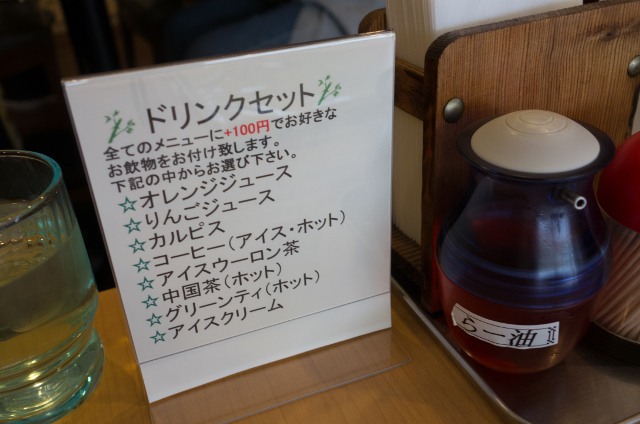 ドリンクセット
全てのメニューに+100円でお好きな
お飲物をお付け致します。
下記の中からお選び下さい。
☆オレンジジュース
☆りんごジュース
☆カルピス
☆コーヒー(アイス・ホット)
☆アイスウーロン茶
☆中国茶(ホット)
☆グリーンティ(ホット)
☆アイスクリーム
らー油